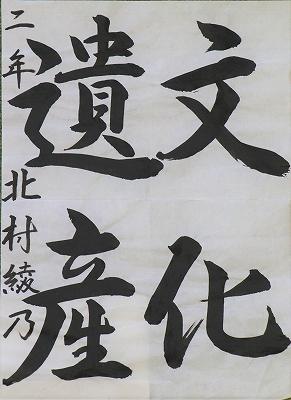 文化
遺産
二年 北村綾乃